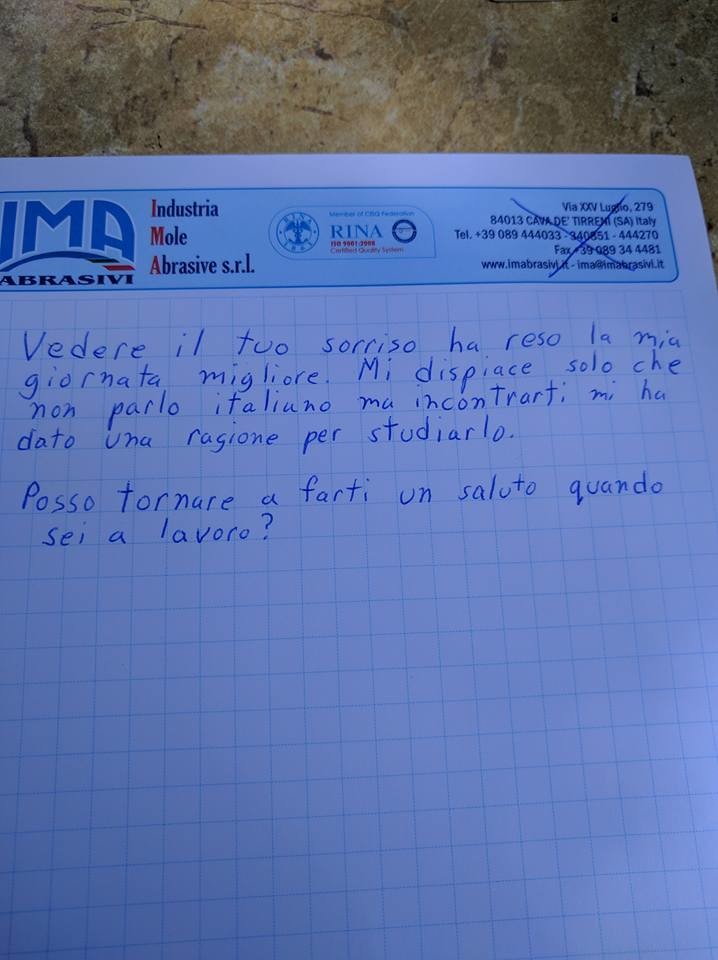 IMA
ABRASIVI
Industria
Mole
Abrasive s.r.l.
Member of CISQ Federation
RINA
ISO 9001:2008
Certified Quality System
RINA
Via XXV Luglio, 279
84013 CAVA DE' TIRRENI (SA) Italy
Tel. +39 089 444033 - 340851 - 444270
Fax +39 089 34 4481
www.imabrasivi.it - ima@imabrasivi.it
Vedere il tuo sorriso ha reso la mia
giornata migliore. Mi dispiace solo che
non parlo italiano ma incontrarti mi ha
dato una ragione per studiarlo.
Posso tornare a farti un saluto quando
sei a lavoro?